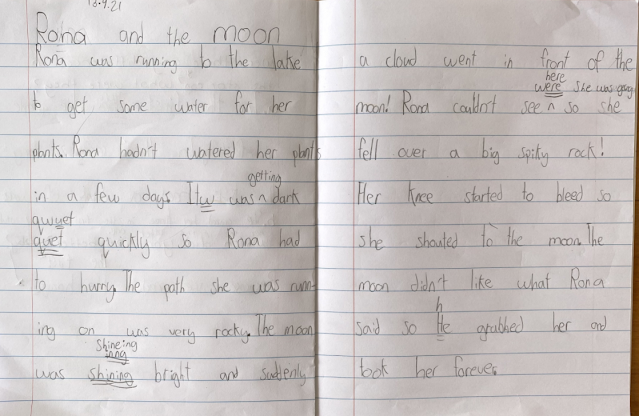 13.9.21
Rona and the moon
Rona was running to the lake
to get some water for her
plants. Rona hadn't watered her plants
getting
in a few days. Itw was ^ dark
qwuet
quet quickly so Rona had
to hurry. The path she was runn-
ing on was very rocky. The moon
Shineing
was shining bright and suddenly
a cloud went in front of the
here
were she was going
moon! Rona couldn't see ^ so she
fell over a big spiky rock!
Her Knee started to bleed so
she shouted to the moon. The
moon didn't like what Rona
h
said so He grabbed her and
took her forever.